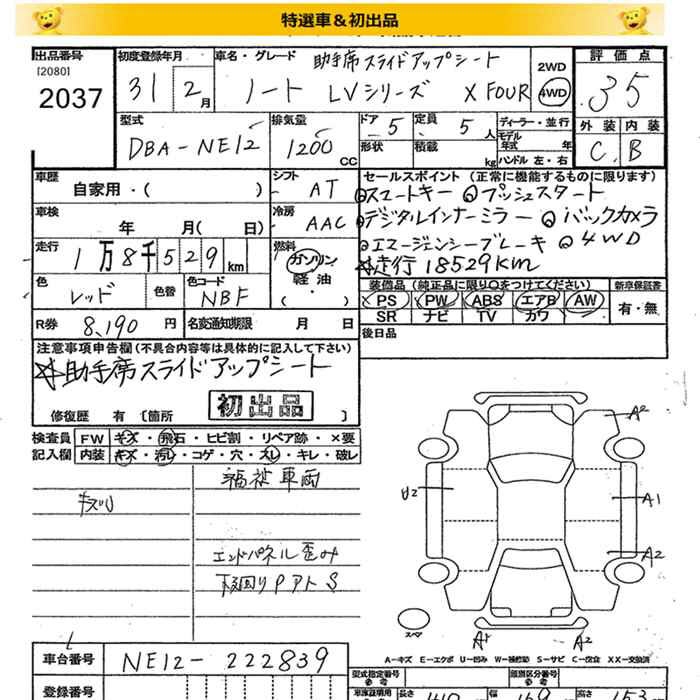 特選車&初出品
出品番号 初度登録年月 車名・グレード 助手席スライドアップシート 2WD 評価点
[2080]
2037 31 2月 ノート LVシリーズ X FOUR 4WD 35
型式 排気量 ドア 5 定員 5人 ディーラー・並行 外装 内装
DBA-NE12 1200 CC 形状 積載 kg モデル年式 年 C B
ハンドル 左・右
車歴 シフト セールスポイント(正常に機能するものに限ります)
自家用・( ) AT スマートキー プッシュスタート
車検 冷房 デジタルインナーミラー バックカメラ
年 月( 日) AAC エマージェンシーブレーキ 4WD
走行 燃料 走行18529KM
1万8千529km ガソリン 軽油
色 色替 色コード 装備品(純正品に限り○をつけてください) 新車保証書
レッド NBF PS PW ABS エアB AW 有・無
SR ナビ TV カワ
R券 8,190円 名変通知期限 月 日 後日品
注意事項申告欄(不具合内容等は具体的に記入して下さい)
助手席スライドアップシート
修復歴 有 [箇所 ]
初出品
検査員 FW キズ・飛石・ヒビ割・リペア跡・×要
記入欄 内装 キズ・汚レ・コゲ・穴・スレ・キレ・破レ
福祉車両
エンドパネル歪み
下回りPアトS
A2
U2
A1
A2
スペア
A1 A2
A-キズ E-エクボ U-凹み W-補修跡 S-サビ C-腐食 XX-交換済
車台番号 NE12-222839
型式指定番号 類別区分番号
登録番号 長さ 幅 169 高さ 153